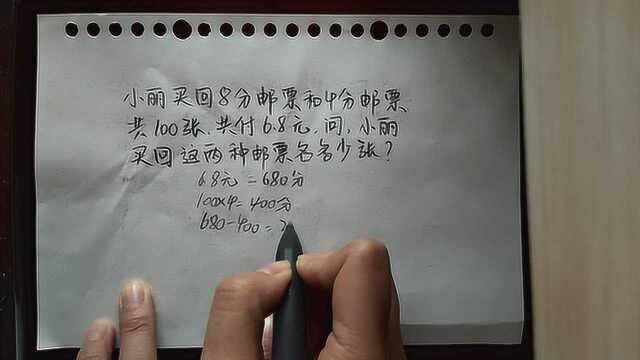 小丽买回8分邮票和4分邮票
共100张,共付6.8元,问,小丽
买回这两种邮票各多少张?
6.8元=680分
100×4=400分
680-400=